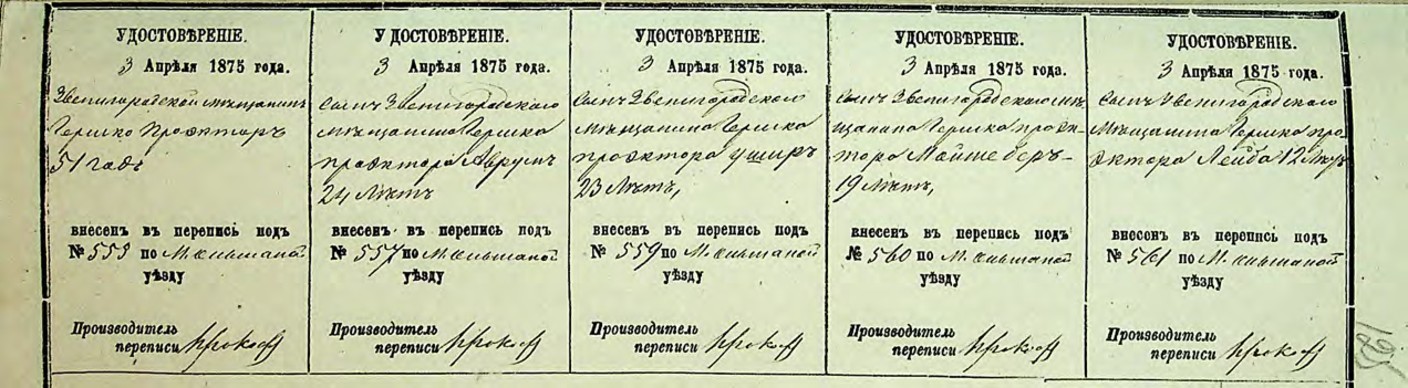 УДОСТОВѢРЕНІЕ.
3 Апрѣля 1875 года.
Звенигородской мѣщанинъ
Гершко Проэкторъ
51 годъ
внесенъ въ перепись подъ
№ 553 по М. Ольшаной
уѣзду
Производитель
переписи
УДОСТОВѢРЕНІЕ.
3 Апрѣля 1875 года.
Сынъ Звенигородского
мѣщанина Гершка
проэктора Аврумъ
24 лѣтъ
внесенъ въ перепись подъ
№ 557 по М. Ольшаной
уѣзду
Производитель
переписи
УДОСТОВѢРЕНІЕ.
3 Апрѣля 1875 года.
Сынъ Звенигородского
мѣщанина Гершка
проэктора Уширъ
23 лѣтъ,
внесенъ въ перепись подъ
№ 559 по М. Ольшаной
уѣзду
Производитель
переписи
УДОСТОВѢРЕНІЕ.
3 Апрѣля 1875 года.
Сынъ Звенигородского мѣ-
щанина Гершка проэк-
тора Мойше Беръ-
19 лѣтъ,
внесенъ въ перепись подъ
№ 560 по М. Ольшаной
уѣзду
Производитель
переписи
УДОСТОВѢРЕНІЕ.
3 Апрѣля 1875 года.
Сынъ Звенигородского
мѣщанина Гершка про-
эктора Лейба 12 лѣтъ
внесенъ въ перепись подъ
№ 561 по М. Ольшаной
уѣзду
Производитель
переписи